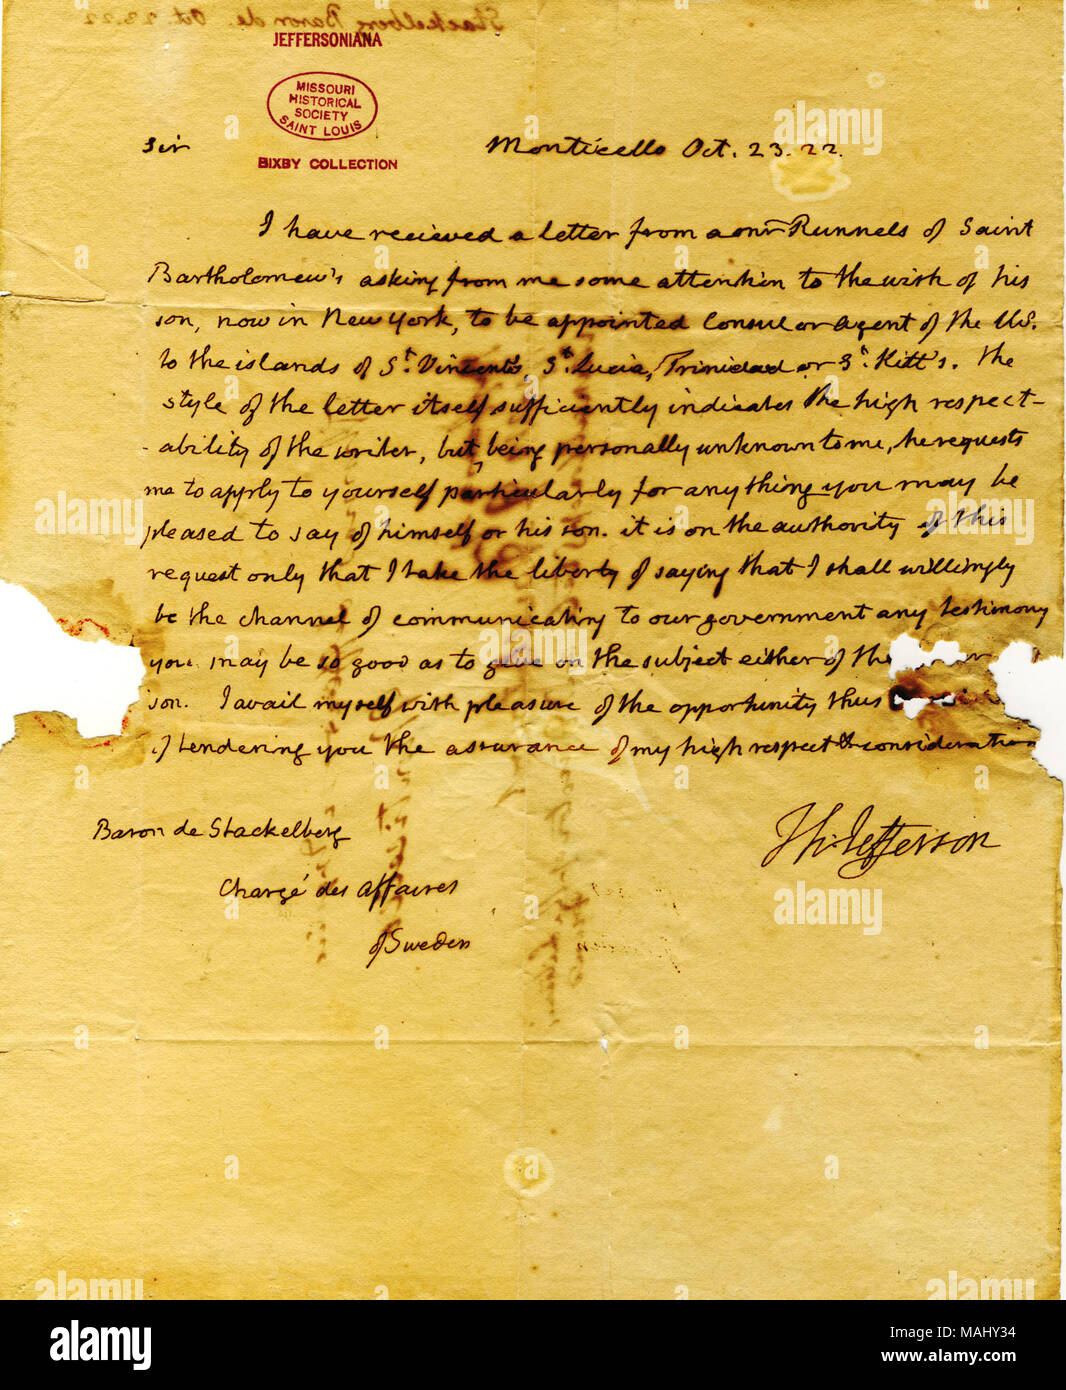 JEFFERSONIANA
MISSOURI
HISTORICAL
SOCIETY
SAINT LOUIS
BIXBY COLLECTION
Sir Monticello Oct. 23. 22.
I have recieved a letter from a Runnels of Saint
Bartholomew's asking from me some attention to the wish of his
son, now in New York, to be appointed Consul or Agent of the US.
to the islands of St. Vincent's, St. Lucia, Trinidad or St. Kitt's. the
style of the letter itself sufficiently indicates the high respect-
-ability of the writer, but, being personally unknown to me, he requests
me to apply to yourself particularly for any thing you may be
pleased to say of himself or his son. it is on the authority of this
request only that I take the liberty of saying that I shall willingly
be the channel of communicating to our government any testimony
you may be so good as to give on the subject either of the or
son. I avail myself with pleasure of the opportunity thus
of tendering you the assurance of my high respect & consideration
Th: Jefferson
Baron de Stackelberg
Chargé des affaires
of Sweden
alamy
Image ID: MAHY34
www.alamy.com